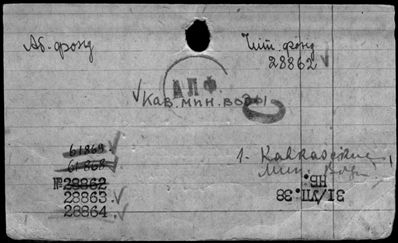 Аб. фонд
Чит. фонд
28862
АПФ
Кав. мин. воды
61869
61868
№ 28862
28863.
28864.
1. Кавказские
Мин. Воды
НБ.
31/VII 38